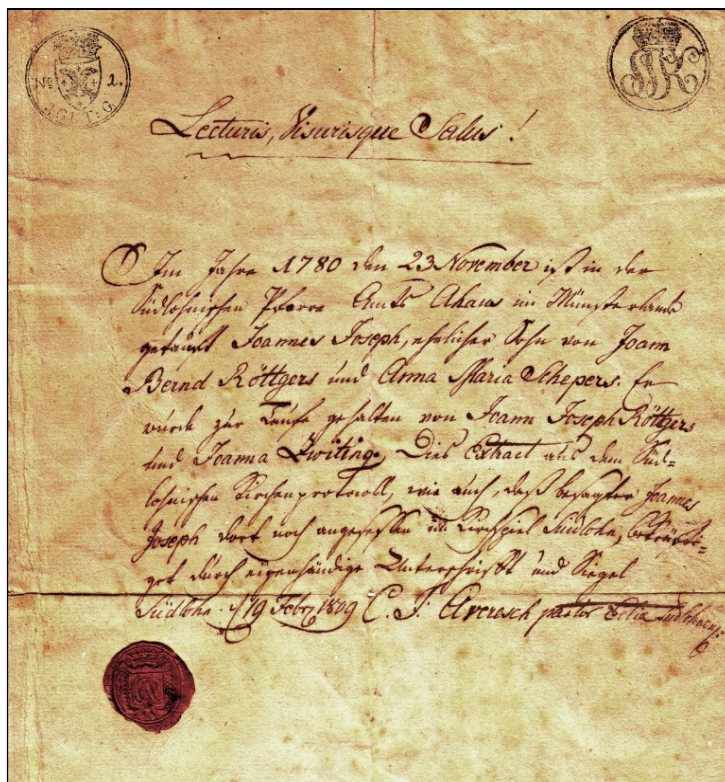 No 2.
Lecturis, Visurisque Salus!
Im Jahre 1780 den 23 November ist in der
Südlohnischen Pfarre Amts Ahaus im Münsterlande
getauft Joannes Joseph, ehelicher Sohn von Joann
Bernd Röttgers und Anna Maria Schepers. Er
wurde zur Taufe gehalten von Joann Joseph Röttgers
und Joanna Zwiting. Dies Extract aus dem Süd=
lohnischen Kirchenprotocoll, wie auch, daß besagter Joannes
Joseph dort noch angesessen im Kirchspiel Südlohn, bekräfti=
get durch eigenhändige Unterschrift und Siegel
Südlohn 19 Febr 1809 C. F. Averesch pastor